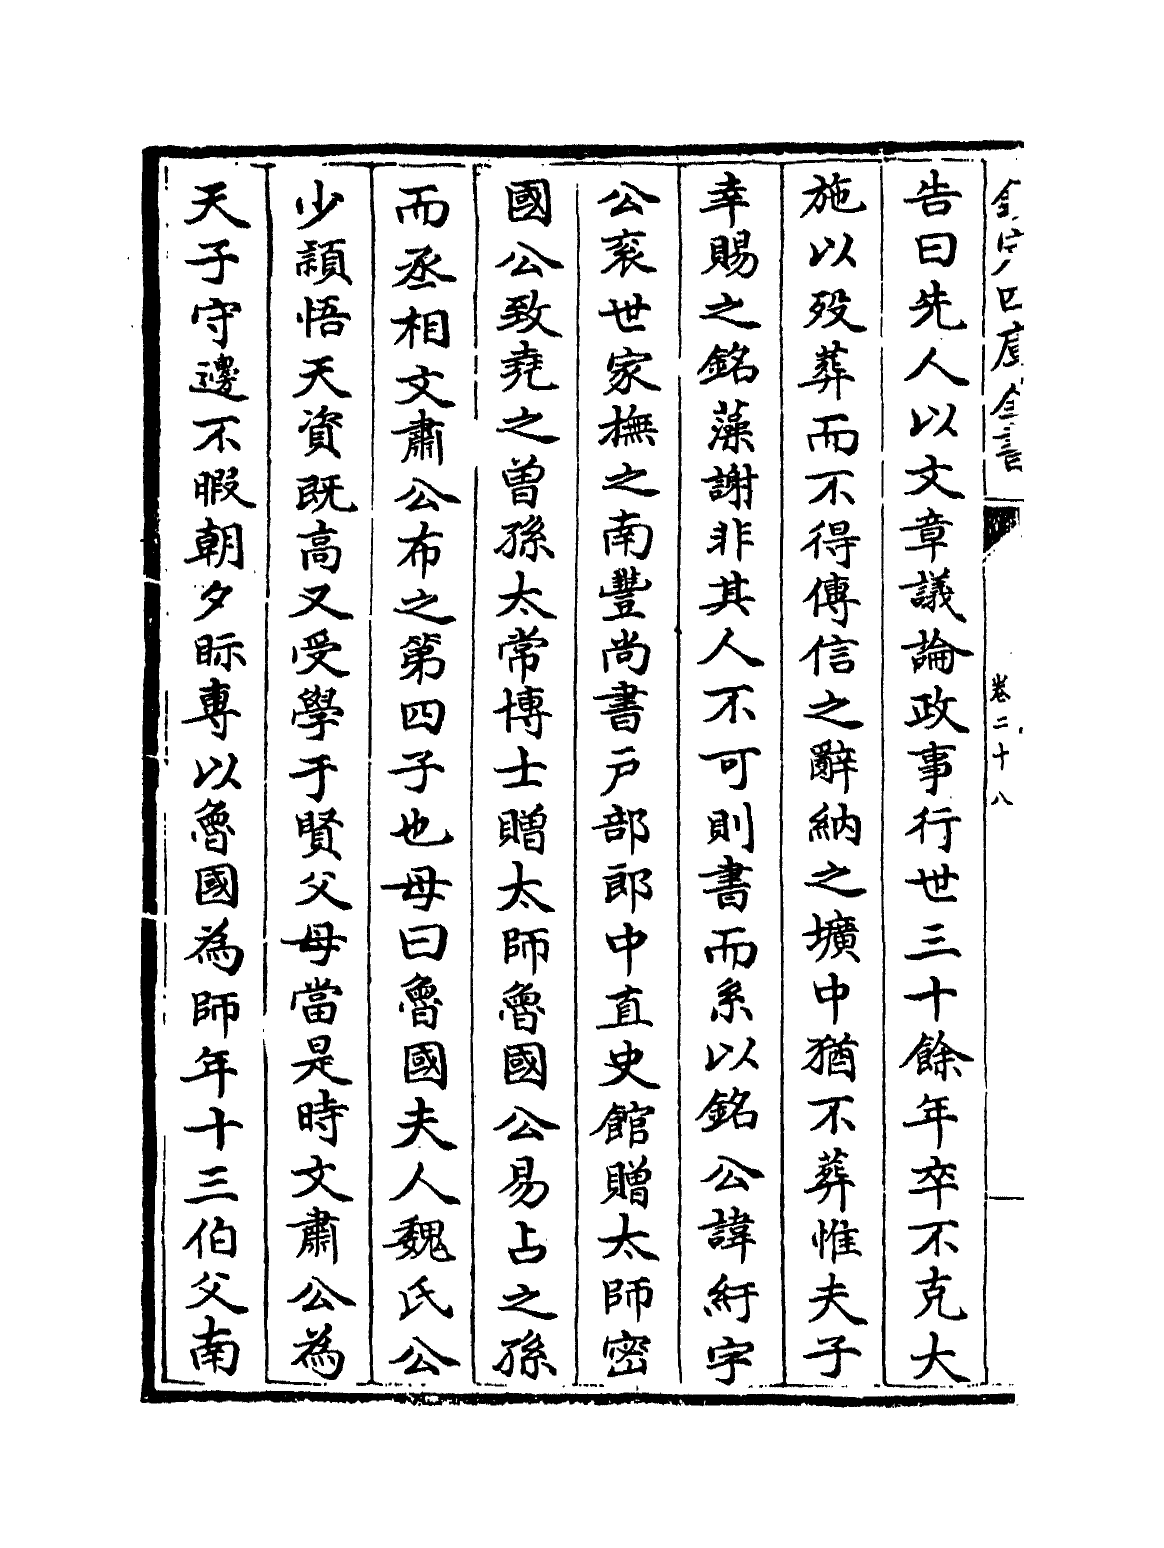 欽定四庫全書
卷二十八
告曰先人以文章議論政事行世三十餘年卒不克大
施以歿葬而不得傳信之辭納之壙中猶不葬惟夫子
幸賜之銘藻謝非其人不可則書而系以銘公諱紆字
公衮世家撫之南豐尚書戸部郎中直史館贈太師密
國公致堯之曾孫太常博士贈太師魯國公易占之孫
而丞相文肅公布之第四子也母曰魯國夫人魏氏公
少頴悟天資既高又受學于賢父母當是時文肅公為
天子守邊不暇朝夕眎専以魯國為師年十三伯父南